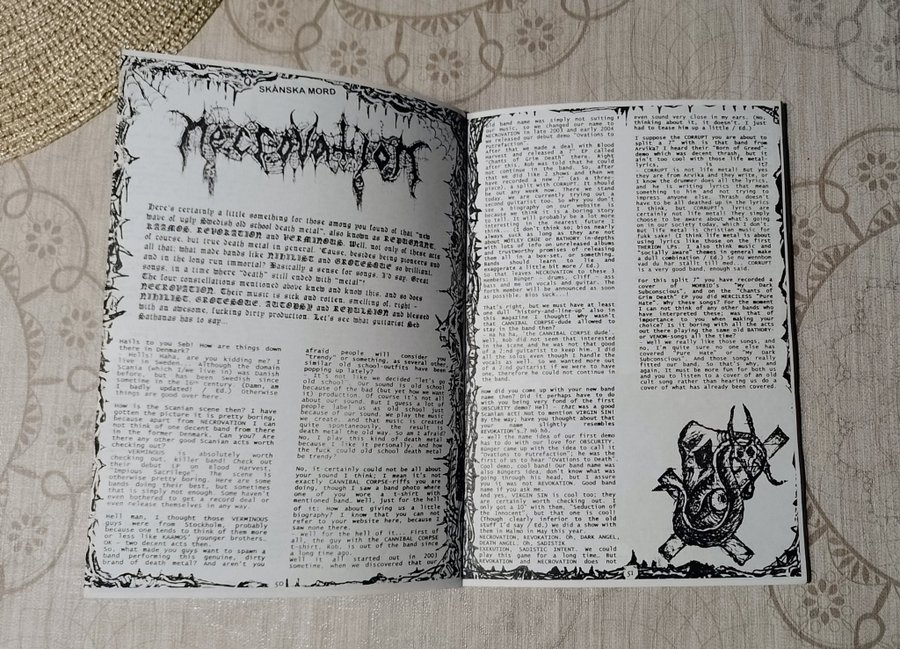 SKÅNSKA MORD
Necrovation
Here's certainly a little something for those among you found of that "new
wave of ugly Swedish old school death metal", also known as REPUGNANT,
KAAMOS, REVOKATION and VERMINOUS. Well, not only of these acts
of course, but true death metal in general. 'Cause, besides being pioneers and
all that; what made bands like NIHILIST and GROTESQUE so brilliant,
and in the long run immortal? Basically a sense for songs, I'd say. Great
songs, in a time where "death" still ended with "metal"!
The four constellations mentioned above knew and know this, and so does
NECROVATION. Their music is sick and rotten, smelling of, right –
NIHILIST, GROTESQUE, AUTOPSY and REPULSION and blessed
with an awesome, fucking dirty production. Let's see what guitarist Seb
Sathanas has to say...
Hails to you Seb! How are things down
there in Denmark?
Hells! Haha, are you kidding me? I
live in Sweden - although the domain
Scania (which I/we live in) was Danish
before, but has been Swedish since
sometime in the 16th century (Damn, am
I badly updated! / Ed.) Otherwise
things are good over here.
How is the Scanian scene then? I have
gotten the picture it is pretty boring,
because apart from NECROVATION I can
not think of one decent band from there
in the former Denmark. Can you? Are
there any other good Scanian acts worth
checking out?
VERMINOUS is absolutely worth
checking out, killer band! Check out
their debut LP on Blood Harvest,
"Impious Sacrilege". The scene is
otherwise pretty boring. Here are some
bands doing their best but sometimes
that is simply not enough. Some haven't
even bothered to get a record deal or
even release themselves in any way.
Hell man, I thought those VERMINOUS
guys were from Stockholm, probably
because one tends to think of them more
or less like KAAMOS' younger brothers.
OK - two decent acts then.
So, what made you guys want to spawn a
band performing this genuine, dirty
brand of death metal? And aren't you
afraid people will consider you
"trendy" or something, as several other
similar old school-outfits have been
popping up lately?
It's not like we decided "let's go
old school". Our sound is old school
because of the bad (but yet how we want
it) production. Of course it's not all
about our sound. But I guess a lot of
people label us as old school just
because of our sound. We play the music
we create and that music is created
quite spontaneously, the result is
death metal the old way. So am I afraid?
No, I play this kind of death metal
because I like it personally, and how
the fuck could old school death metal
be trendy?
No, it certainly could not be all about
your sound I think; I mean it's not
exactly CANNIBAL CORPSE-riffs you are
doing, though I saw a band photo where
one of you wore a t-shirt with
mentioned band. Well, just for the hell
of it: How about giving us a little
biography? I know that you can not
refer to your website here, because I
saw none there.
– Well for the hell of it: first of
all, the guy with the CANNIBAL CORPSE
t-shirt, Rob, is out of the band since
a long time ago.
Well it all started out in 2001
sometime, when we discovered that our
50
old band name was simply not suiting
our music, so we changed our name to
NECROVATION. In late 2003 and early 2004
we released our debut demo "Ovations to
Putrefaction".
After that we made a deal with Blood
Harvest and released an EP called
"Chants of Grim Death" there. Right
after this, Rob was told that he could
not continue in the band. After
that we did like 2 shows and then we
just recorded another 7" (as a three-
piece), a split with CORRUPT. It should
be out any week now. There we stand
today, we are currently trying out a
new guitarist too. So why you don't
find any biography on our website is
because we think it is a boring thing.
It will probably be a lot more
interesting in the future.
– I don't think so; bios nearly
suck as long as they are not
about MÖTLEY CRÜE or BATHORY. In depths
with lots of info on unreleased albums
and suspicious intentions of releasing
them all in a box-set, or something.
You should at least try to lie and
exaggerate a little bit more / Ed.)
That leaves NECROVATION to these 3
on drums, Cliff – ass
bass and me on vocals and guitar. The
4th member will be announced as soon as
possible. Bios suck...!
That's right, but we must have at least
one dull "history-and-line-up" also in
this magazine I thought! Why wasn't
that CANNIBAL CORPSE-dude allowed to
stay in the band then?
– haha, "the CANNIBAL CORPSE dude".
Well, Rob did not seem that interested
in the scene and he was not that good
of a 2:nd guitarist to keep him. I did
all the solos even though I handle the
vocals also, so we wanted more out
of a 2:nd guitarist if we were to have
one, therefore he could not continue in
the band.
How did you come up with your new band
name then? Did it perhaps have to do
with you being very fond of the first
OBSCURITY demo? Hell – that was a good
Scanian act! Not to mention VIRGIN SIN!
By the way, have you thought about that
name slightly resembles
REVOKATION's,? HÖ HÖ.
– Well the name idea of our first demo
has to do with our love for OBSCURITY.
Runger came up with the idea to call it
"Ovations to Putrefaction"; he was the
one of us to hear "Ovations to Death".
Cool demo, cool band! Our band name was
also Rungers idea, don't know what was
going through his head, but I assure
you it was not REVOKATION. Good band
though if you ask me.
And yes, VIRGIN SIN is cool too; they
are certainly worth checking out. I
only got a 10" with them, "Seduction of
the Innocent", but that one is cool!
(Though clearly inferior to the old
stuff I'd say / Ed.) We did a show with
them in Malmö in May this year.
NECROVATION, REVOKATION. Oh, DARK ANGEL,
DEATH ANGEL. Oh, SADISTIK
EXEKUTION, SADISTIC INTENT. We could
play this game for a long time. But
REVOKATION and NECROVATION does not
even sound very close in my ears. (No,
thinking about it, it doesn't. I just
had to tease him up a little / Ed.)
I suppose the CORRUPT you are about to
split a 7" with is that band from
Arvika? I heard their "Born of Greed"
demo which was decent thrash, but it
ain't too cool with those life metal-
lyrics, is it?
– CORRUPT is not life metal! But yes
they are from Arvika and they write, or
I know the drummer does all the lyrics,
and he is writing lyrics that mean
something to him and not trying to
impress anyone else. Thrash doesn't
have to be all dressed up in the lyrics
I think, but CORRUPT's lyrics are
certainly not life metal! They simply
choose to be aware about what's going
on in our society today, which I don't.
But life metal is Christian music for
fuck sake! (No, I think life metal is about
using lyrics like those on the first
THERION LPs. I also think music and
"Social"/political themes in general make
a dull combination / Ed.) In nu wennbom
vad du har ställt till med... CORRUPT
is a very good band, enough said.
For this split 7" you have recorded a
cover of MORBID's "My Dark
Subconscious", and on the "Chants of
Grim Death" EP you did MERCILESS "Pure
Hate". Why these songs? For the moment
I can not think of any other bands who
have interpreted these; was that of
importance to you when making your
choice? Is it boring with all the acts
out there playing the same old BATHORY-
or VENOM-songs all the time?
– Well we really like those songs, and
no, I'm quite sure no one else has
covered "Pure Hate" or "My Dark
Subconscious", and those songs really
fitted our band. So that's why, and
again, it must be more fun for both us
and you to listen to a cover of an old
cult song rather than hearing us do a
cover of what has already been covered.
51